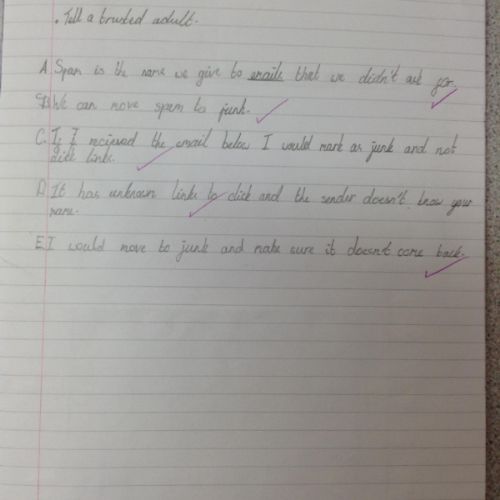 • Tell a trusted adult.
A. Spam is the name we give to emails that we didn't ask for.
B. We can move spam to junk.
C. If I recieved the email below I would mark as junk and not
click links.
D. It has unknown links to click and the sender doesn't know your
name.
E. I would move to junk and make sure it doesn't come back.